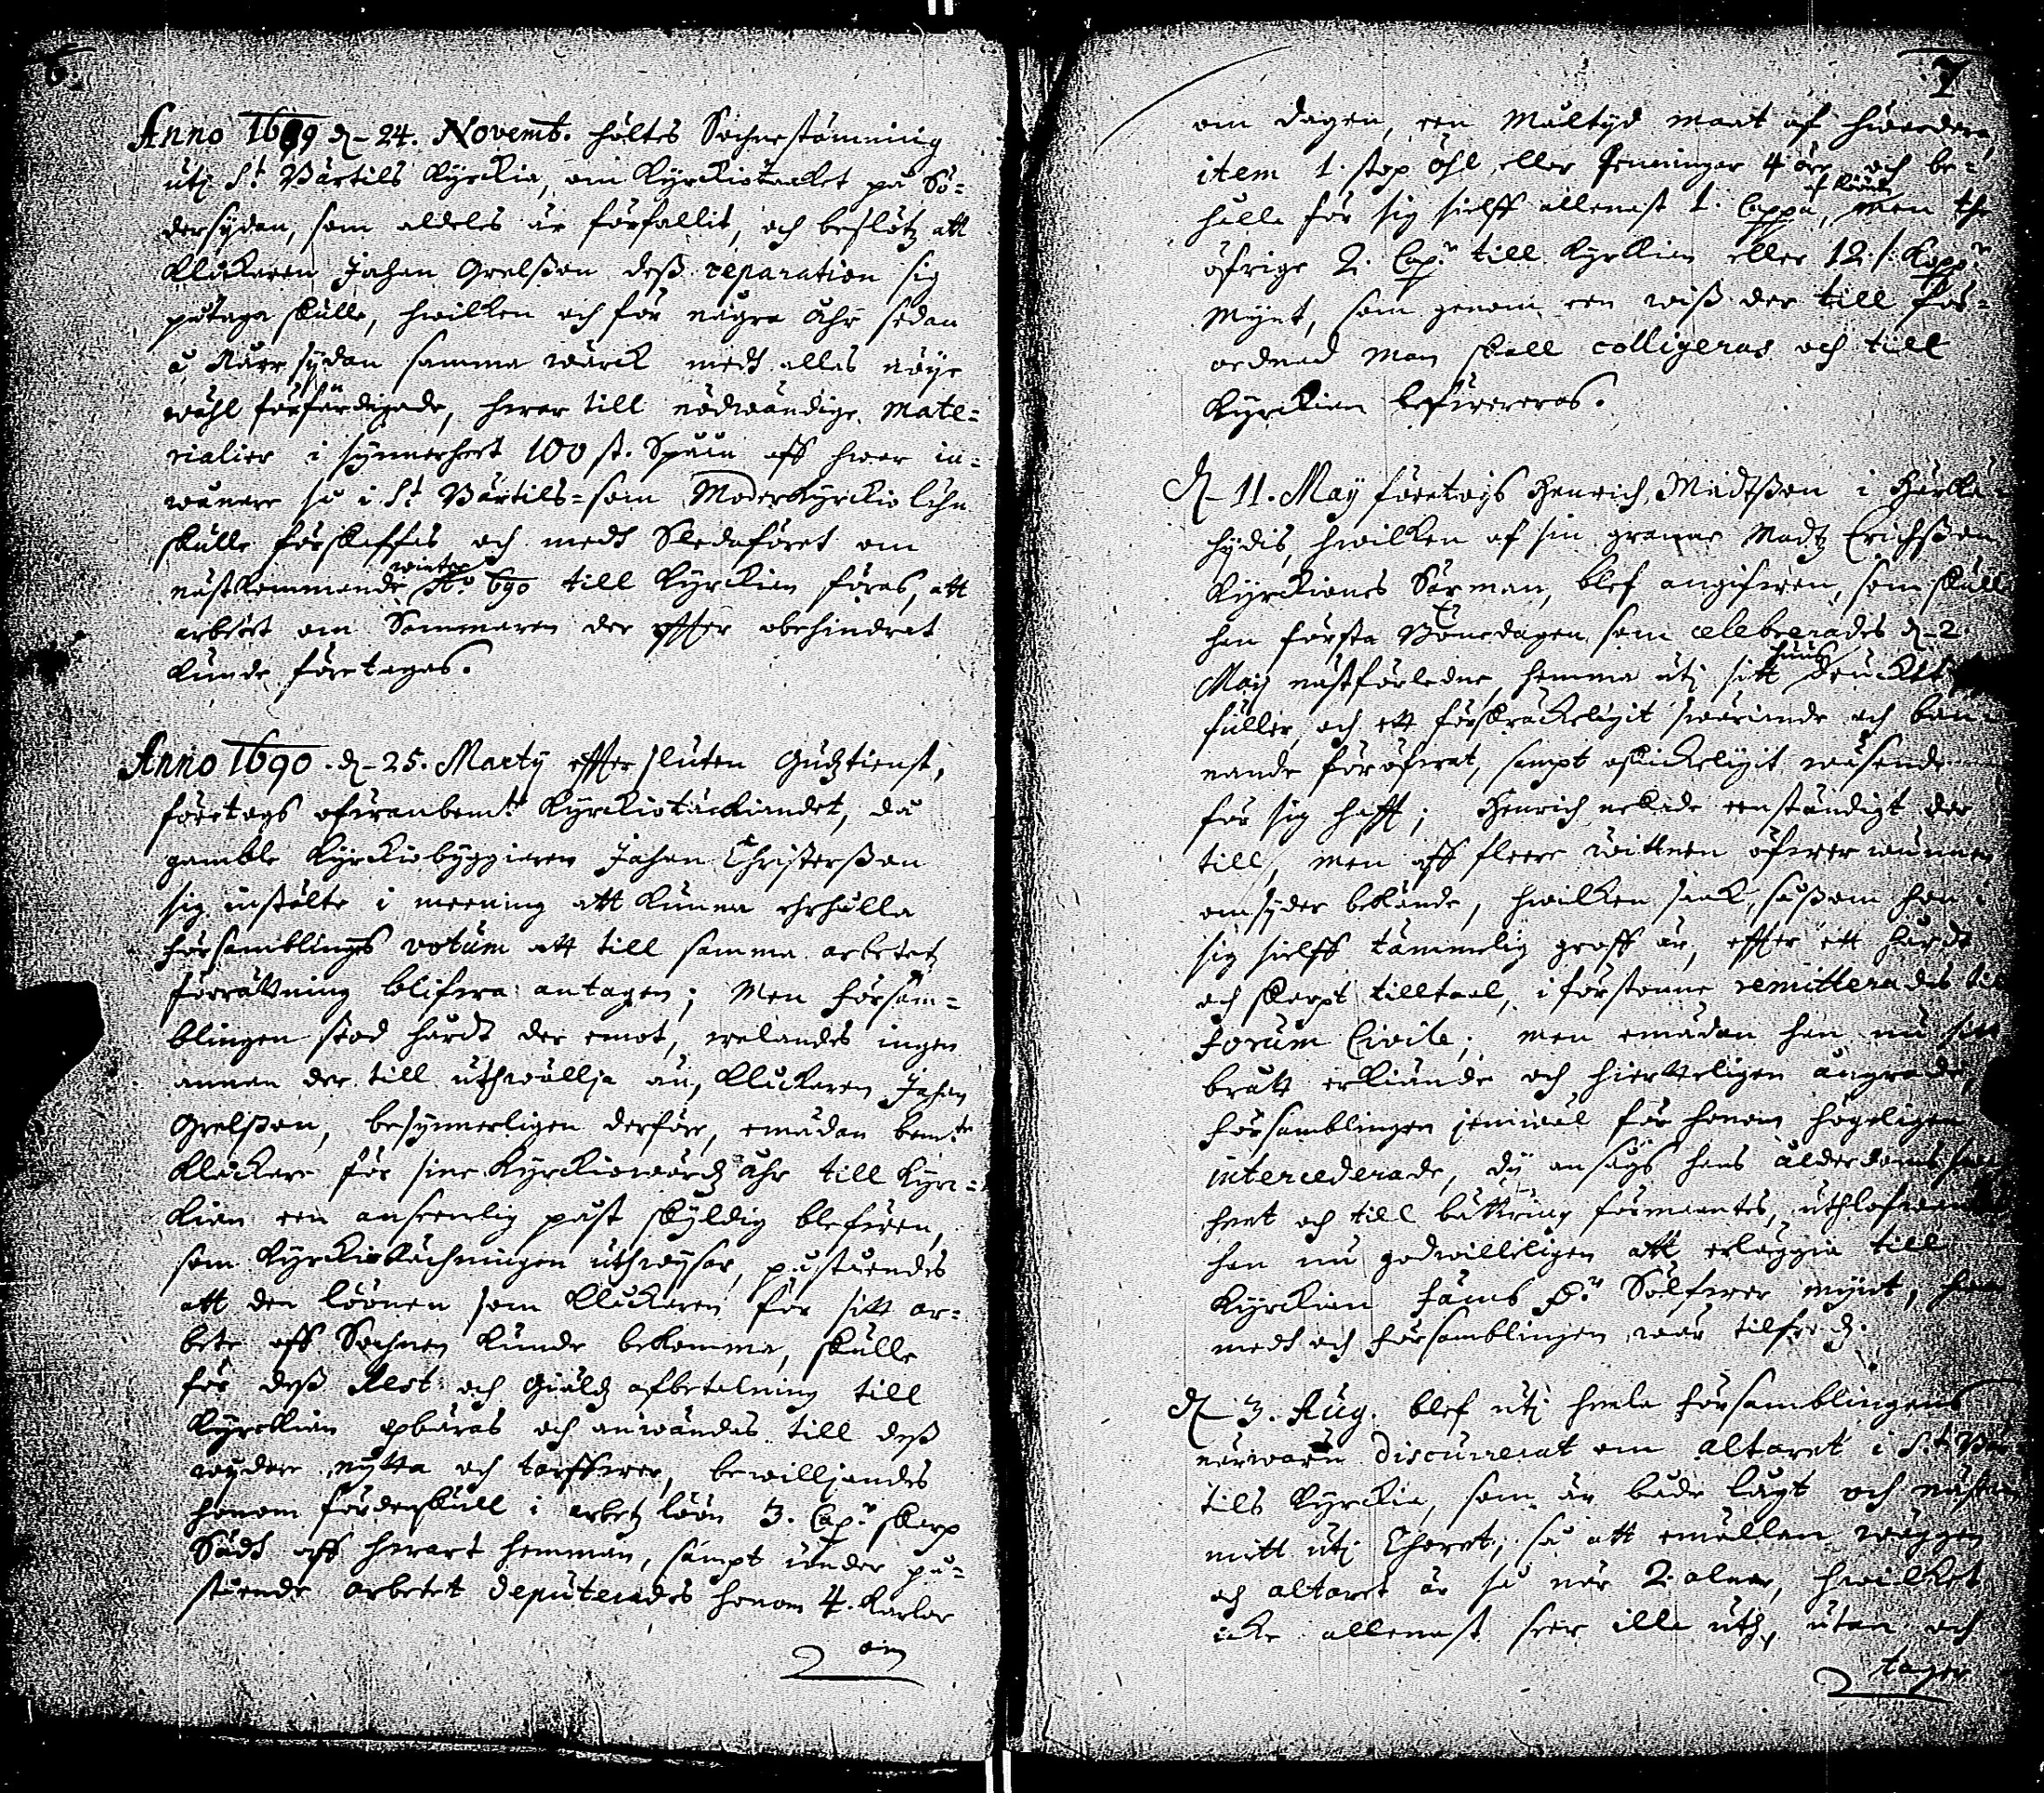 6.
Anno 1689 d. 24. Novemb. höltes Sochnestämning
utj St. Bärtils Kyrckia, om Kyrckiotaaket på Sö-
dersydan, som aldeles är förfallit, och beslötz att
Klåckaren Johan Grelsson dess reparation sig
påtaga skulle, hwilken och för någre åhr sedan
å Norr sydan samma wärck medh alles nöye
wähl förfärdigade, hwar till nödwändige mate-
rialier i synnerheet 100 st. Spåån aff hwar in-
wånare så i St. Bärtils- som Moderkyrckio lähn
skulle förskaffas och medh Sledaföret om
nästkommande winter Ao. 690 till Kyrckian föras, att
arbetet om Sommaren der effter obehindrat
kunde företagas.
Anno 1690. d. 25. Martij effter sluten Gudztienst,
företogs ofwanbem:te Kyrckiotäckiandet, då
gamble Kyrckiobyggiaren Johan Christersson
sig instälte i meening att kunna ehrhålla
församblings votum att till samma arbetetz
förrättning blifwa antagen; Men Försam-
blingen stod hårdt der emot, welandes ingen
annan der till uthwällja än, Klåckaren Johan
Grelsson, besynnerligen derföre, emädan bem:te
Klåckare för sine Kyrckiowärdz åhr till Kyrc-
kian een anseenlig påst skyldig blefwen,
som Kyrckiorächningen uthwysar, påståendes
att den löönen som Klåckaren för sitt ar-
bete aff Sochnen kunde bekomma, skulle
för dess Rest och Giäldz afbetalning till
Kyrckian opbäras och anwändas till dess
wydare nytta och tarfwer, bewilljandes
honom fördenskull i arbetz löön 3. Cap:r skarp
Sädh aff hwart hemman, sampt under på-
stående arbetet deputerades honom 4. karlar
om
7
om dagen, een måltyd maat af hwardera,
item 1. stop öhl eller Penningar 4 öre och be-
hålla för sig sielff allenast 1. Cappa, af Råugh men the
öfrige 2. Cap:r till Kyrckian eller 12 s. Kopp:r
Mynt, som genom een wiss der till för-
ordnad man skall colligeras och till
Kyrckian lefwereras.
d. 11. Maij företogs Henrich Madtsson i
hydis, hwilken af sin granne Madz Erichsson
Kyrckiones Sexman, blef angifwen, som skulle
han första Bönedagen, som celebrerades d. 2.
Maij nästförledne hemma utj sitt huus druckit
füller, och ett förskräckeligit swäriande och ban-
nande föröfwat, sampt oskickeligit wäsende
för sig hafft; Henrich nekade eenständigt der
till, men aff fleere wittnen öfwerwunnen
omsyder bekände, hwilken saak, såssom hon i
sig sielff tämmelig groff är, effter ett hårdt
och skarpt tilltaal, i förstonne remitterades til
Forum Civile; men emädan han nu sitt
brått erkiände och hierteligen ångrade,
församblingen jemwäl för honom högeligen
intercederade, dy ansågs hans ålderdoms
heet och till bättring förmantes, uthlofwandes
han nu godwilleligen att erläggia till
Kyrckian Fäm D:r Sölfwer mynt, hwar
medh och församblingen war tilfredz.
d. 3. Aug. blef utj heela församblingens
närwaru discurrerat om altaret i St. Bär-
tils Kyrckia, som är både lågt och nästan
mitt utj Choret; så att emellan wäggen
och altaret är så när 2. alnar, hwilket
icke allenast seer illa uth, utan och
tager